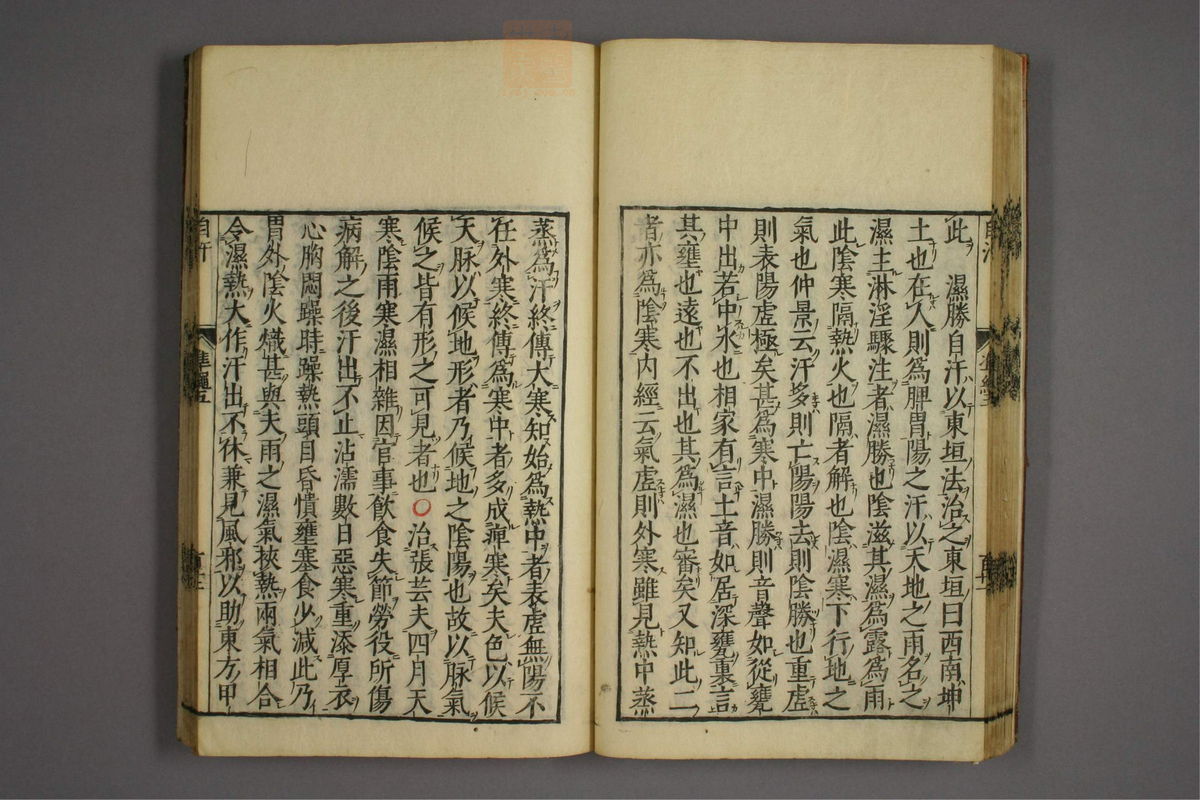 此　濕勝自汗以東垣法治之東垣曰西南坤
土也在人則為脾胃陽之汗以天地之雨名之
濕主淋淫驟注者濕勝也陰滋其濕為露為雨
此陰寒隔熱火也隔者解也陰濕寒下行地之
氣也仲景云汗多則亡陽陽去則陰勝也重虛
則表陽虛極矣甚為寒中濕勝則音聲如從甕
中出若中水也相家有言土音如居深甕裏言
其壅也遠也不出也其為濕也審矣又知此二
者亦為陰寒內經云氣虛則外寒雖見熱中蒸
蒸為汗終傳大寒知始為熱中者表虛無陽不
任外寒終傳為寒中者多成痺寒矣夫色以候
天脉以候地形者乃候地之陰陽也故以脉氣
候之皆有形之可見者也○治張芸夫四月天
寒陰雨寒濕相雜因官事飲食失節勞役所傷
病解之後汗出不止沾濡數日惡寒重添厚衣
心胸悶躁時躁熱頭目昏憒壅塞食少減此乃
胃外陰火熾甚與夫雨之濕氣挾熱兩氣相合
令濕熱大作汗出不休兼見風邪以助東方甲
自汗
準繩五